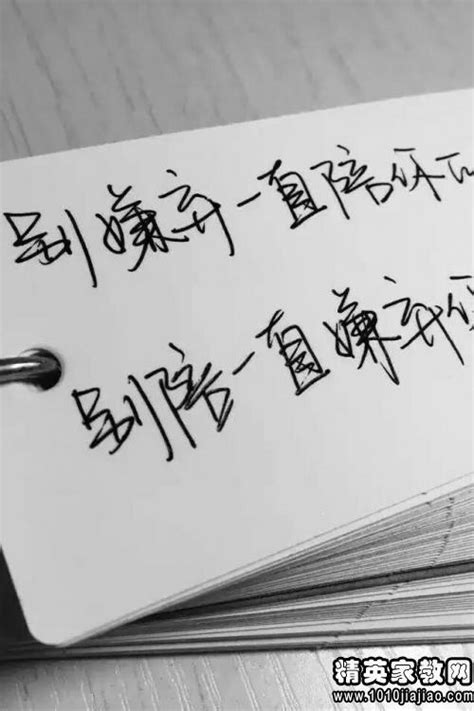 别嫌弃一直陪你
别陪一直嫌弃你
精英家教网
www.1010jiajiao.com